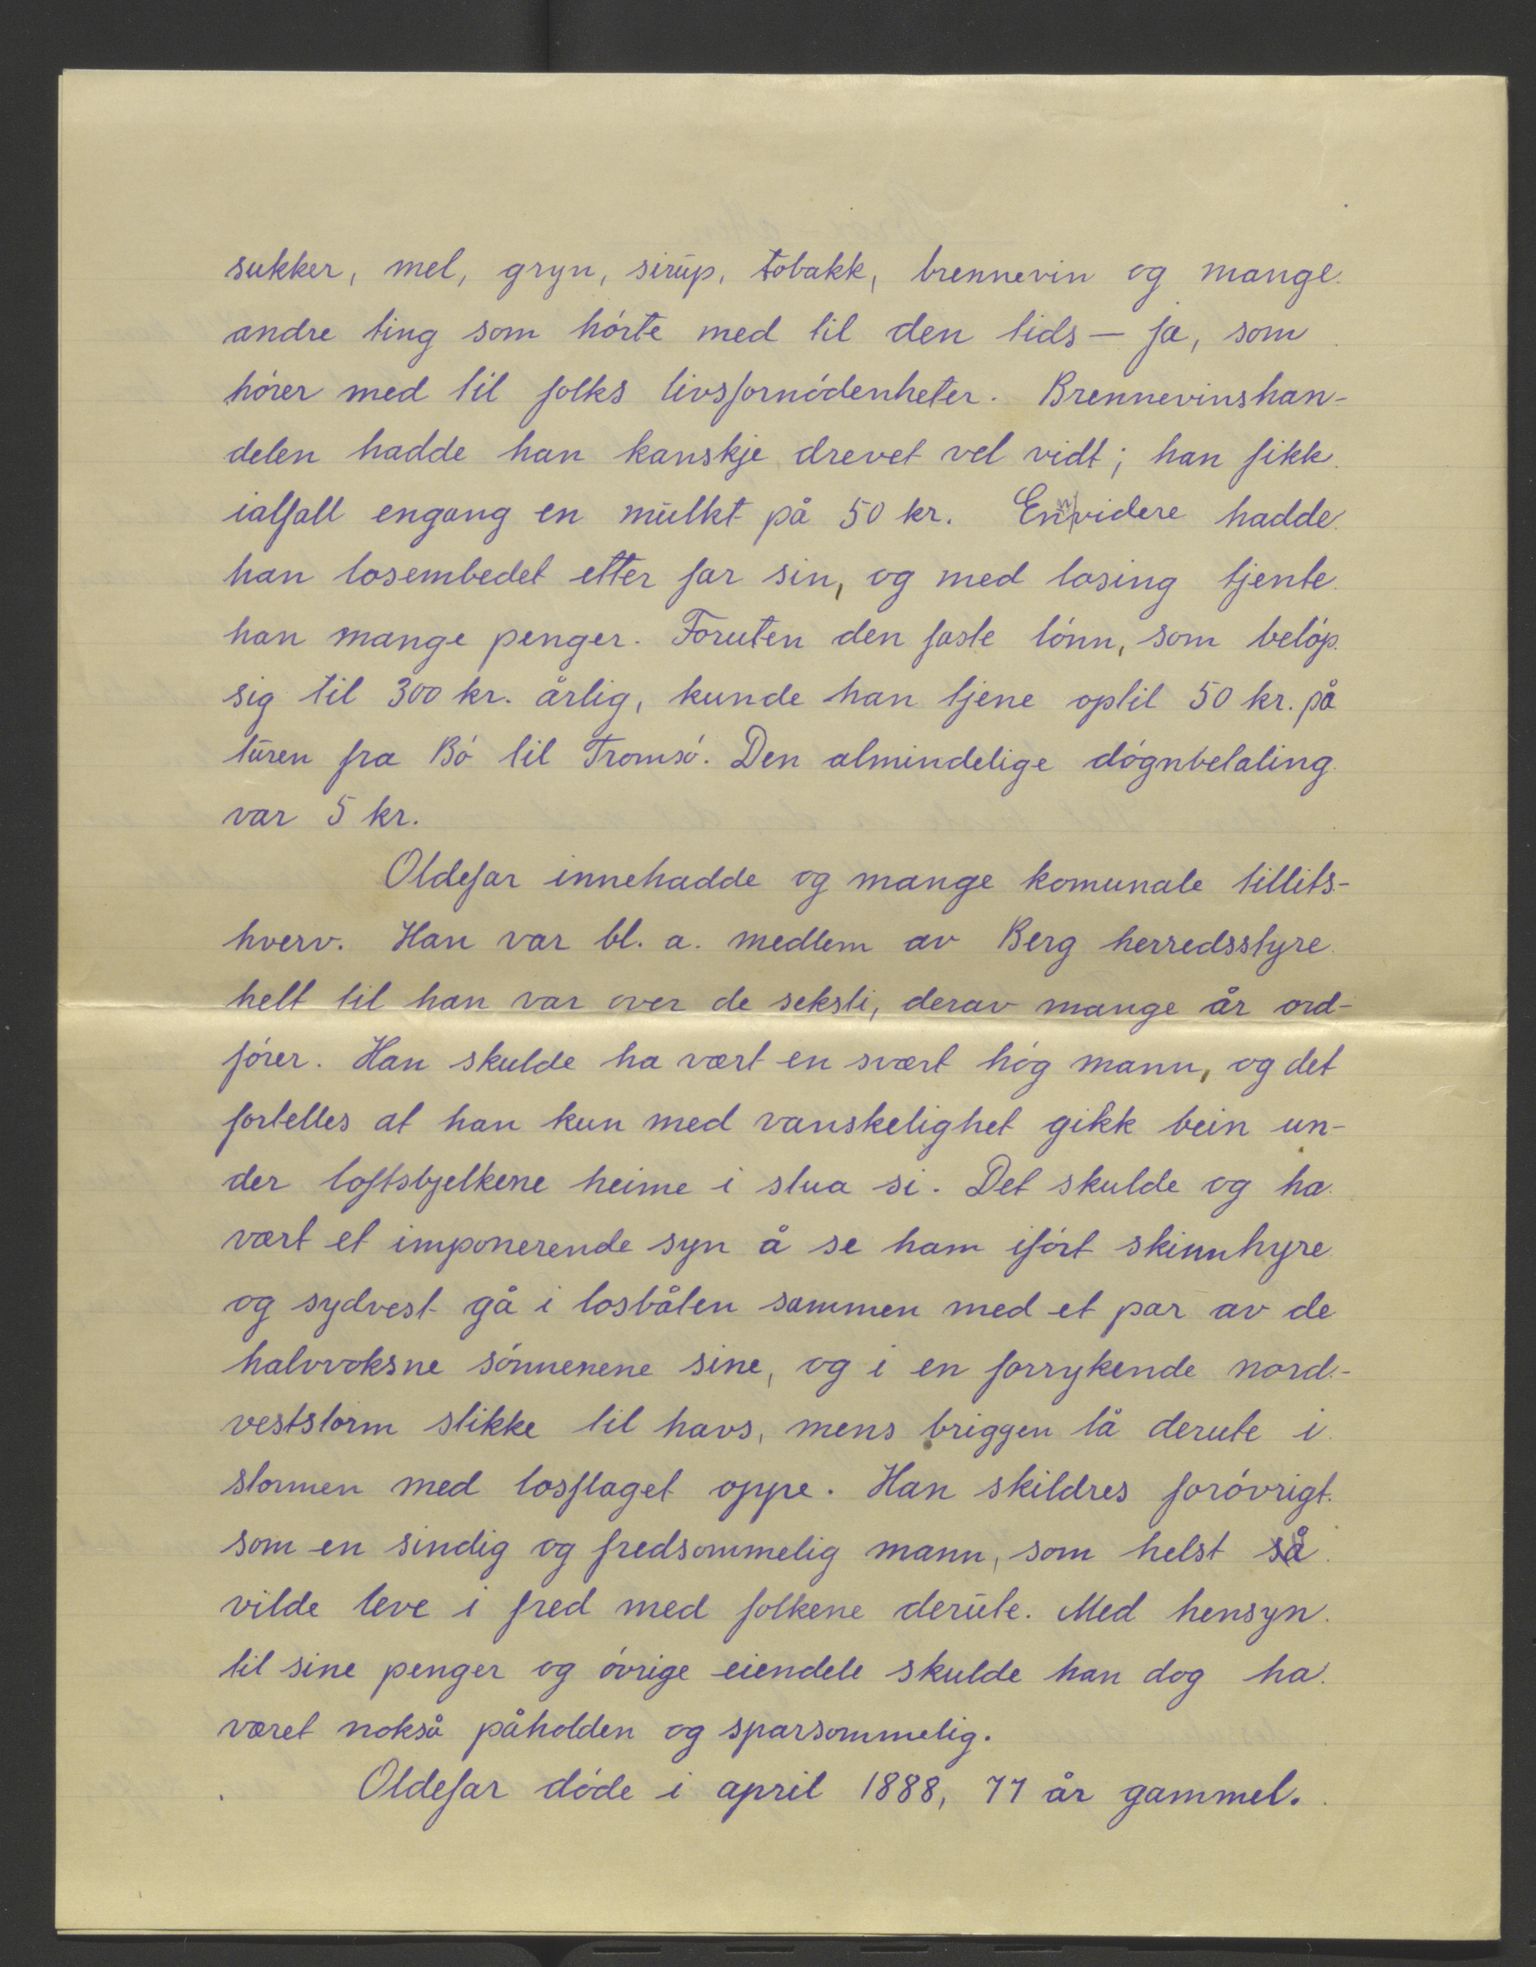 sukker, mel, gryn, sirup, tobakk, brennevin og mange
andre ting som hórte med til den tids — ja, som
hórer med til folks livsfornódenheter. Brennevinshan-
delen hadde han kanskje drevet vel vidt; han fikk
ialfall engang en mulkt på 50 kr. Ennvidere hadde
han losembedet etter far sin, og med losing tjente
han mange penger. Foruten den faste lónn, som belóp
sig til 300 kr. årlig, kunde han tjene optil 50 kr. på
turen fra Bó til Tromsó. Den almindelige dógnbetaling
var 5 kr.
Oldefar innehadde og mange komunale tillits-
hverv. Han var bl. a. medlem av Berg herredsstyre
helt til han var over de seksti, derav mange år ord-
fórer. Han skulde ha vært en svært hóg mann, og det
fortelles at han kun med vanskelighet gikk bein un-
der loftsbjelkene heime i stua si. Det skulde og ha
vært et imponerende syn å se ham ifórt skinnhyre
og sydvest gå i losbåten sammen med et par av de
halvvoksne sónnenene sine, og i en forrykende nord-
veststorm stikke til havs, mens briggen lå derute i
stormen med losflaget oppe. Han skildres foróvrigt
som en sindig og fredsommelig mann, som helst så
vilde leve i fred med folkene derute. Med hensyn
til sine penger og óvrige eiendele skulde han dog ha
været nokså påholden og sparsommelig.
Oldefar dóde i april 1888, 77 år gammel.